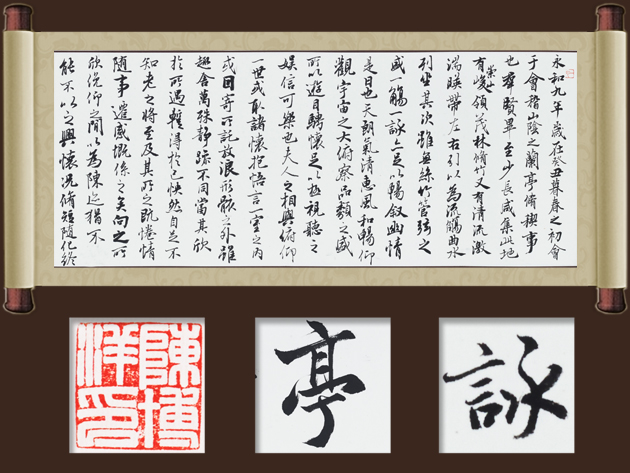 永和九年歲在癸丑暮春之初會
于會稽山陰之蘭亭脩稧事
也羣賢畢至少長咸集此地
有崇山峻領茂林脩竹又有清流激
湍暎帶左右引以為流觴曲水
列坐其次雖無絲竹管弦之
盛一觴一詠亦足以暢敘幽情
是日也天朗氣清惠風和暢仰
觀宇宙之大俯察品類之盛
所以遊目騁懷足以極視聽之
娛信可樂也夫人之相與俯仰
一世或取諸懷抱悟言一室之內
或因寄所託放浪形骸之外雖
趣舍萬殊靜躁不同當其欣
於所遇暫得於己快然自足不
知老之將至及其所之既惓情
隨事遷感慨係之矣向之所
欣俛仰之閒以為陳迹猶不
能不以之興懷況脩短隨化終
陳博洋印
亭
詠